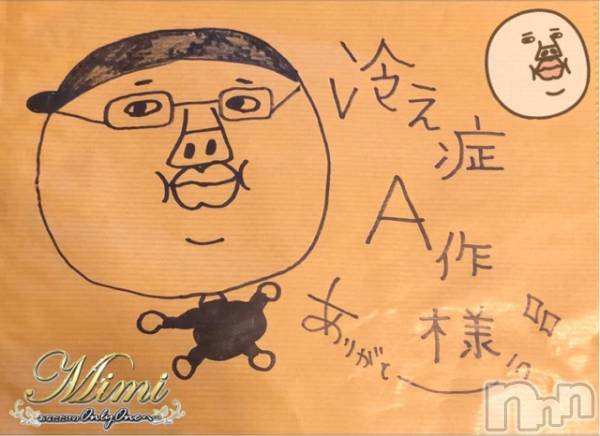 冷え症
A作
様
ありがと
Mimi
OnlyOne